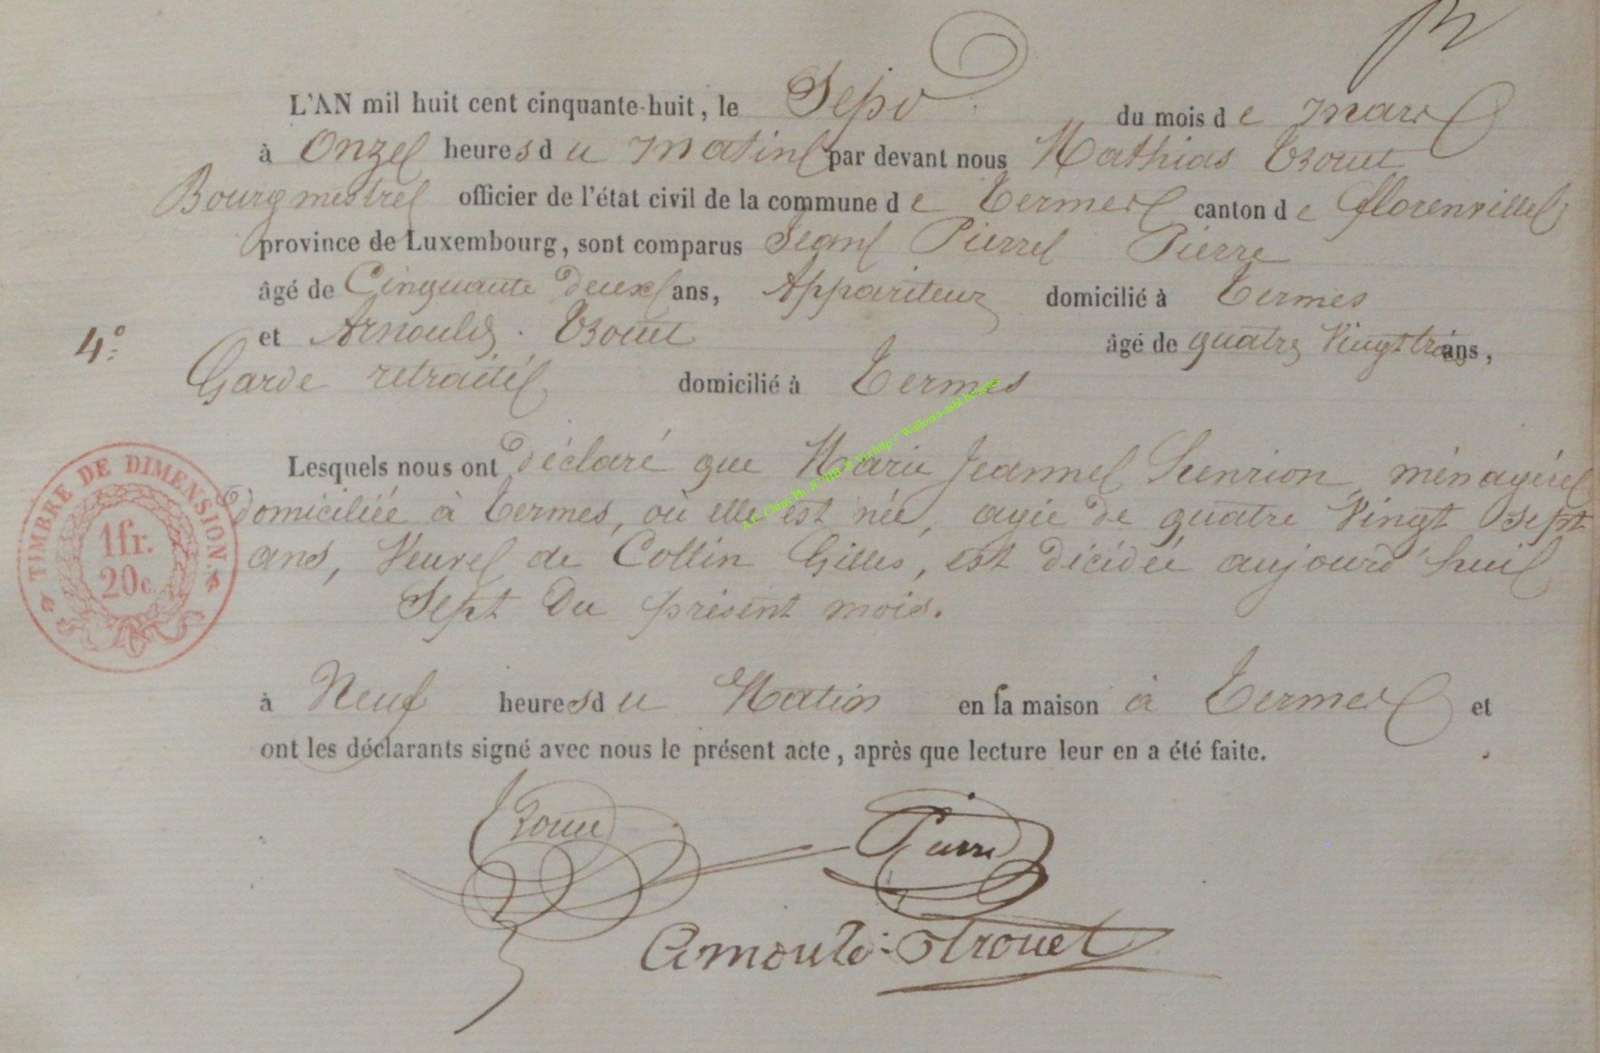 L'AN mil huit cent cinquante-huit, le Sept du mois de mars
à Onze heures du matin par devant nous Mathias Trouet
Bourgmestre officier de l'état civil de la commune de Termes canton de florenville,
province de Luxembourg, sont comparus Jean Pierre Pierre
âgé de Cinquante deux ans, Appariteur domicilié à Termes
4° et Arnould Trouet âgé de quatre Vingt trois ans,
Garde retraité domicilié à Termes
Lesquels nous ont déclaré que Marie Jeanne Henrion, ménagère
domiciliée à Termes, où elle est née, agée de quatre Vingt Sept
ans, Veuve de Collin Gilles, est décédée aujourd'hui
Sept du présent mois.
à Neuf heures du Matin en sa maison à Termes et
ont les déclarants signé avec nous le présent acte, après que lecture leur en a été faite.
Trouet Pierre
Arnould Trouet
TIMBRE DE DIMENSION.
1fr.
20c.